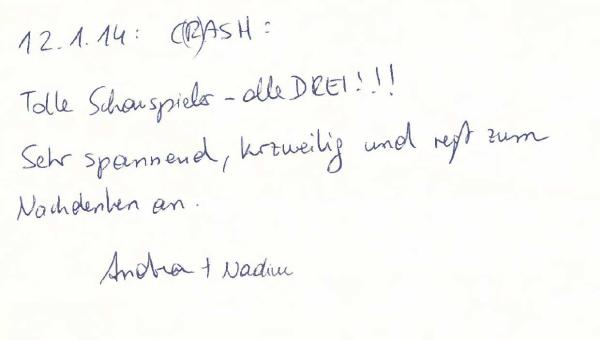 12.1.14: C(R)ASH:
Tolle Schauspieler - alle DREI!!!
Sehr spannend, kurzweilig und regt zum
Nachdenken an.
Andrea + Nadine